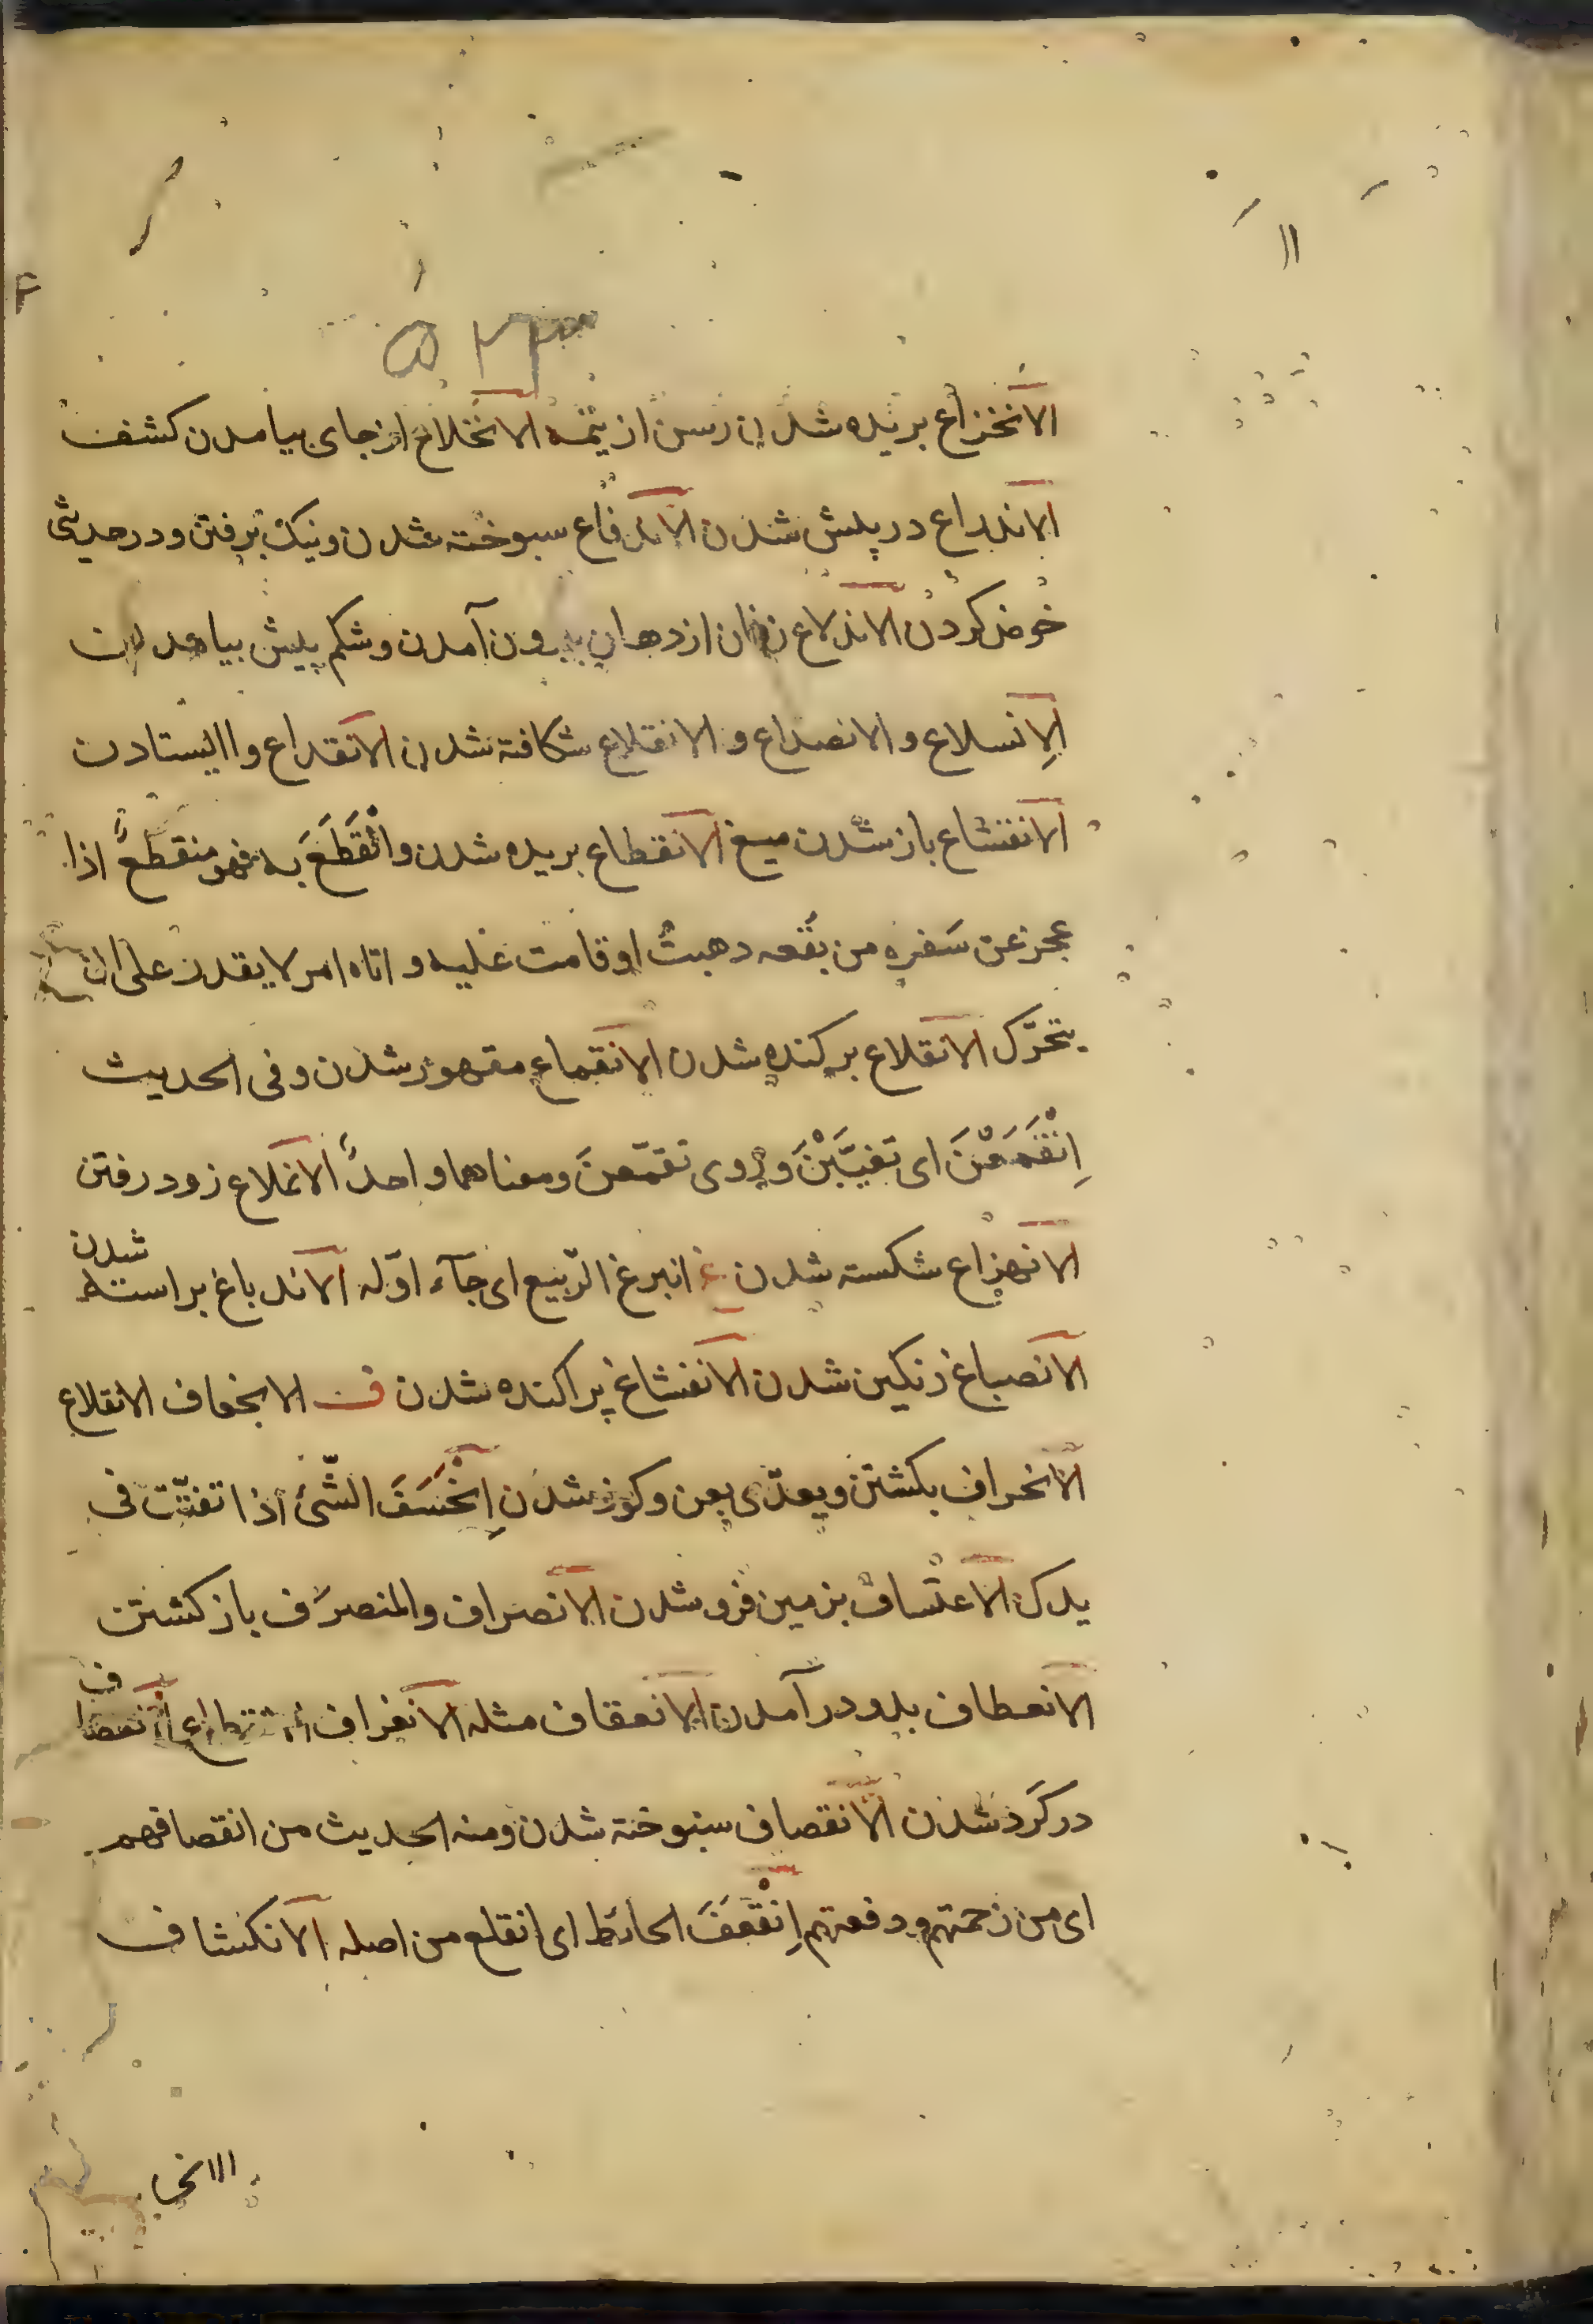 الانخزاع بریده شدن رسن از نیمه الانخلاع از جای بیامدن کشف
الاندراع در پیش شدن الاندفاع سبوخته شدن و نیک برفتن و در حدیثی
خوض کردن الاندلاع زفان از دهان بیرون آمدن و شکم پیش بیامدن
الاِنسلاع و الانصداع و الانقلاع شکافته شدن الانقداع واایستادن
الانقشاع باز شدن میغ الانقطاع بریده شدن وانْقَطَعَ به فهو منقطعٌ اذا
عجز عن سَفره من نفقه دهبتْ او قامت علیه و اتاه امر لا یقدر علی ان
یتحرّک الانقلاع برکنده شدن الانقماع مقهور شدن و فی الحدیث
اِنْقَمَعْنَ ای تغیَّبْنَ و روی تقمّعنَ و معناهما واحدٌ الانملاع زود رفتن
الانهزاع شکسته شدن غ انبرغ الرّبیع ای جآء اوّله الاندباغ براسته شدن
الانصباغ رنکین شدن الانفشاغ پراکنده شدن ف الانجعاف الانقلاع
الانحراف بکشتن و یعدّی بعن و کوز شدن اِنْخَسَفَ الشّیٔ اذا تفتّت فی
یدک الاعتساف بزمین فرو شدن الانصراف والمنصرَف باز کشتن
الانعطاف بدو در آمدن الانعقاف مثله الانغراف الانقطاع الانعصاف
در کَرد شدن الانقصاف سبوخته شدن و منه الحدیث من انقصافهم
ای من زحمتهم و دفعتهم اِنْقَعَفَ الحائط ای انقلع من اصله الانکشاف